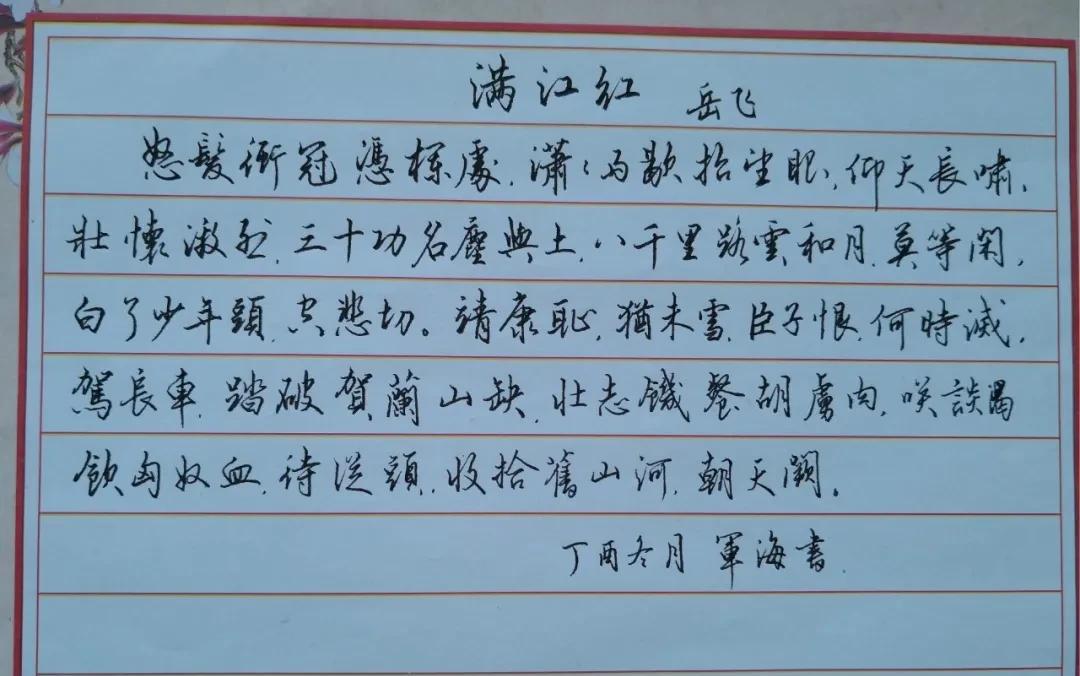 满江红 岳飞
怒髮衝冠憑欄處,瀟〻雨歇抬望眼,仰天長嘯,
壯懷激烈,三十功名塵與土,八千里路雲和月,莫等閑,
白了少年頭,空悲切。靖康恥,猶未雪,臣子恨,何時滅,
駕長車,踏破賀蘭山缺,壯志饑餐胡虜肉,笑談渴
飲匈奴血,待從頭,收拾舊山河,朝天闕。
丁酉冬月 軍海書